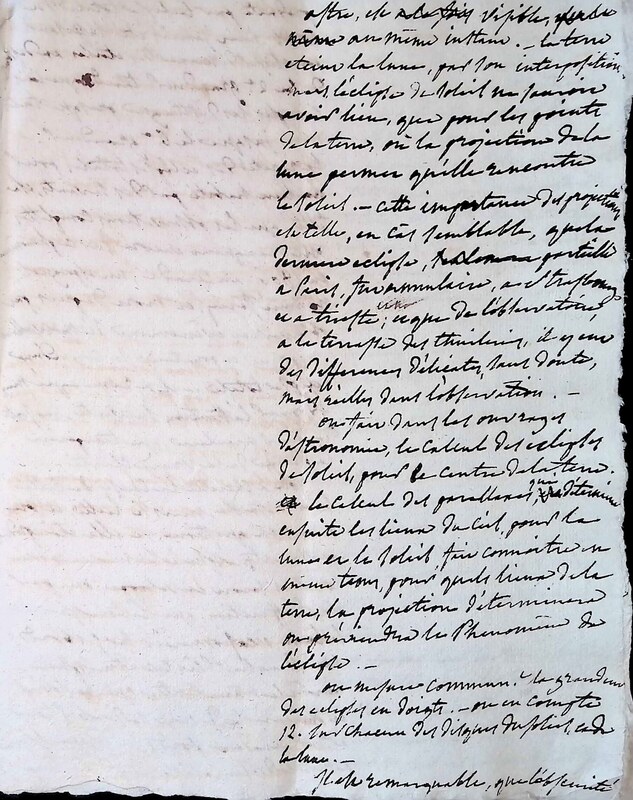 astre, est visible,
au même instant. — la terre
eteint la lune, par son interposition,
mais l'éclipse de soleil ne sauroit
avoir lieu, que pour les points
de la terre, où la projection de la
lune permet qu'elle rencontre
le soleil. — cette importance des projections
est telle, en cas semblable, que la
derniere eclipse, partielle
à Paris, fut annulaire, a Strasbourg
et a trieste, et que de l'observatoire
a la terrasse des thuileries, il y a eu
des differences délicates, sans doute,
mais réelles dans l'observation. —
on fait dans les ouvrages
d'astronomie, le calcul des eclipses
de soleil, pour le centre de la terre.
le calcul des parallaxes, qui détermine
ensuite les lieux du ciel, pour la
lune et le soleil, fait connoitre en
même tems, pour quels lieux de la
terre, la projection déterminera
ou préviendra le Phenomène de
l'éclipse. —
on mesure commun.t la grandeur
des eclipses en doigts. — on en compte
12. sur chacun des disques du soleil, et de
la lune. —
Il est remarquable, que l'obscurité